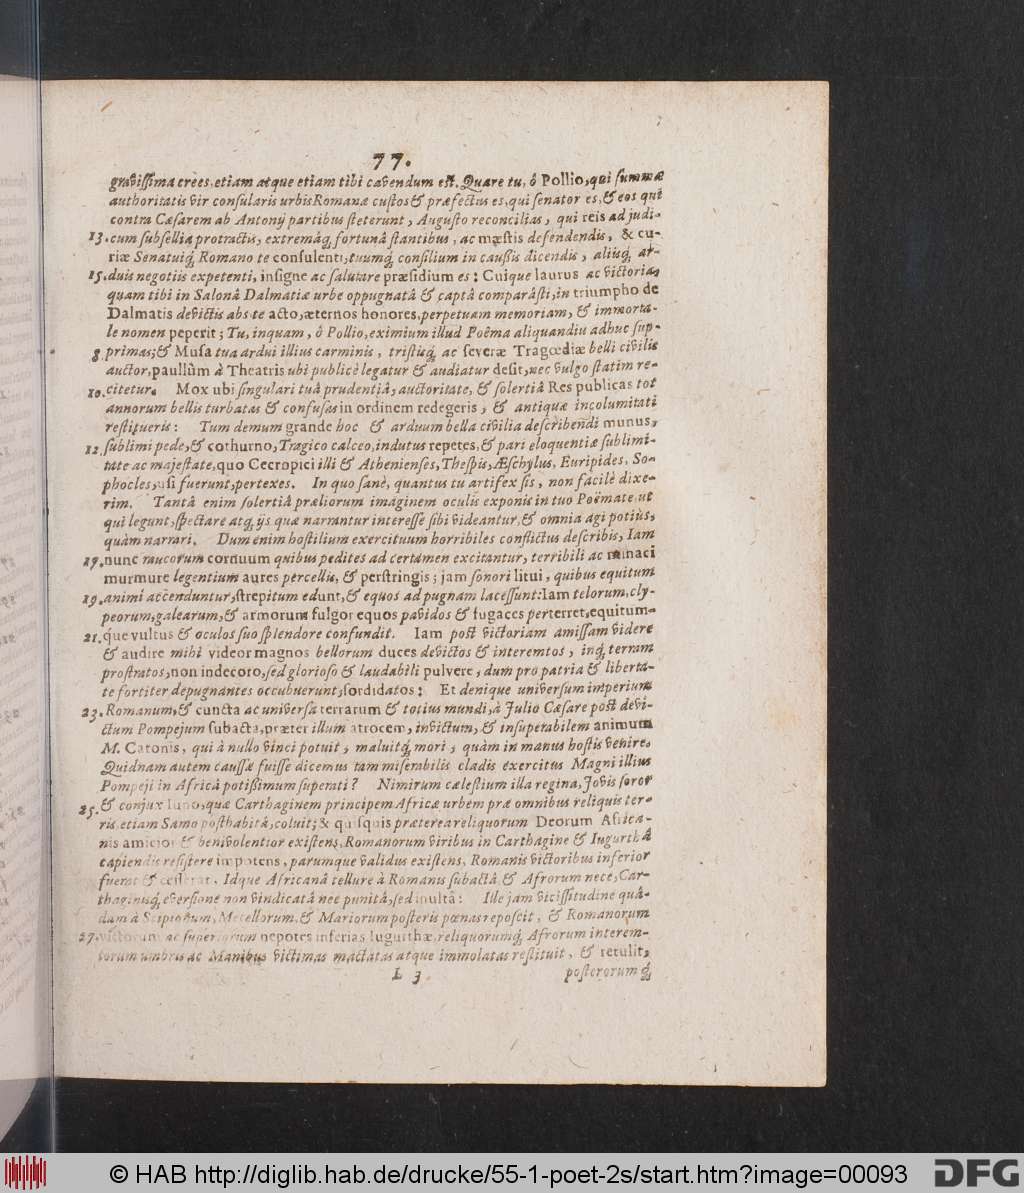 77.
gravissima crêes, etiam atque etiam tibi cavendum est. Quare tu, ô Pollio, qui summæ
authoritatis vir consularis urbis Romanæ custos & præfectus es, qui senator es, & eos qui
contra Cæsarem ab Antonij partibus steterunt, Augusto reconcilias, qui reis ad judi-
13. cum subsellia protractis, extremâq; fortunâ stantibus, ac mæstis defendendis, & cu-
riæ Senatuiq; Romano te consulenti, tuumq; consilium in caussis dicendis, aliisq; ar-
15. duis negotiis expetenti, insigne ac salutare præsidium es: Cuique laurus ac victoria,
quam tibi in Salonâ Dalmatiæ urbe oppugnatâ & captâ comparâsti, in triumpho de
Dalmatis devictis abs te acto, æternos honores, perpetuam memoriam, & immorta-
le nomen peperit; Tu, inquam, ô Pollio, eximium illud Poêma aliquandiu adhuc sup-
8. primas; & Musa tua ardui illius carminis, tristiúq; ac severæ Tragœdiæ belli civilis
auctor, paullùm à Theatris ubi publicè legatur & audiatur desit, nec vulgo statim re-
10. citetur. Mox ubi singulari tuâ prudentiâ, auctoritate, & solertiâ Res publicas tot
annorum bellis turbatas & confusas in ordinem redegeris, & antiquæ incolumitati
restitueris: Tum demum grande hoc & arduum bella civilia describendi munus,
12. sublimi pede, & cothurno, Tragico calceo, indutus repetes, & pari eloquentiæ sublimi-
tate ac majestate, quo Cecropici illi & Athenienses, Thespis, Æschylus, Euripides, So-
phocles, usi fuerunt, pertexes. In quo sanè, quantus tu artifex sis, non facilè dixe-
rim. Tantâ enim solertiâ præliorum imaginem oculis exponis in tuo Poëmate, ut
qui legunt, spectare atq; ijs quæ narrantur interesse sibi videantur, & omnia agi potiùs,
quàm narrari. Dum enim hostilium exercituum horribiles conflictus describis, Iam
17. nunc raucorum cornuum quibus pedites ad certamen excitantur, terribili ac minaci
murmure legentium aures percellis, & perstringis; jam sonori litui, quibus equitum
19. animi accenduntur, strepitum edunt, & equos ad pugnam lacessunt: Iam telorum, cly-
peorum, galearum, & armorum fulgor equos pavidos & fugaces perterret, equitum-
21. q́ue vultus & oculos suo splendore confundit. Iam post victoriam amissam videre
& audire mihi videor magnos bellorum duces devictos & interemtos, inq; terram
prostratos, non indecoro, sed glorioso & laudabili pulvere, dum pro patria & liberta-
te fortiter depugnantes occubuerunt, sordidatos: Et denique universum imperium
23. Romanum, & cuncta ac universa terrarum & totius mundi, à Julio Cæsare post devi-
ctum Pompejum subacta, præter illum atrocem, invictum, & insuperabilem animum
M. Catonis, qui à nullo vinci potuit, maluitq; mori, quàm in manus hostis venire.
Quidnam autem caussæ fuisse dicemus tam miserabilis cladis exercitus Magni illius
Pompeji in Africâ potißimum superati? Nimirum cælestium illa regina, Jovis soror
25. & conjux Iuno, quæ Carthaginem principem Africæ urbem præ omnibus reliquis ter-
ris, etiam Samo posthabitâ, coluit; & quisquis præterea reliquorum Deorum Africa-
nis amicior & benivolentior existens, Romanorum viribus in Carthagine & Iugurthâ
capiendis resistere impotens, parumque validus existens, Romanis victoribus inferior
fuerat & cesserat. Idque Africanâ tellure à Romanis subactâ, & Afrorum nece, Car-
thaginisq; eversione non vindicatâ nec punitâ, sed inultâ: Ille jam vicissitudine quâ-
dam à Scipionum, Metellorum, & Mariorum posteris pœnas reposcit, & Romanorum
27. victorum ac superiorum nepotes inferias Iugurthæ, reliquorumq; Afrorum interem-
torum umbris ac Manibus victimas mactatas atque immolatas restituit, & retulit,
L 3
posterorumq;
© HAB http://diglib.hab.de/drucke/55-1-poet-2s/start.htm?image=00093
DFG